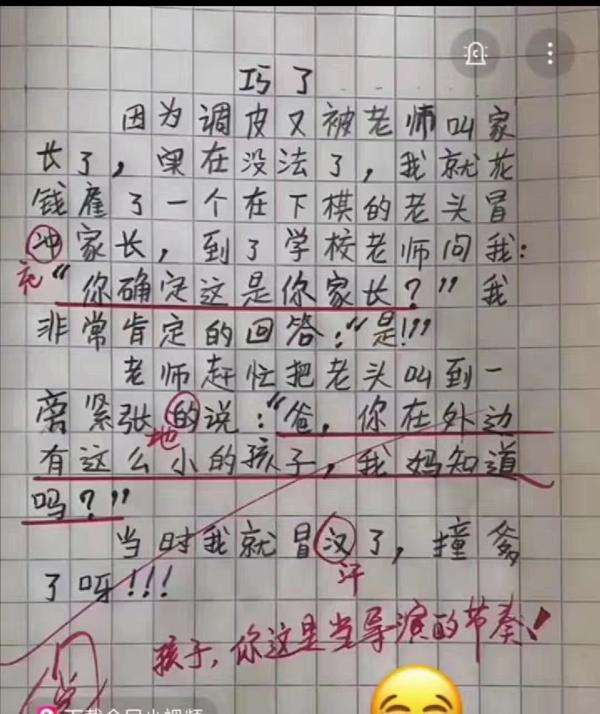 巧了
因为调皮又被老师叫家
长了，实在没法了，我就花
钱雇了一个在下棋的老头冒
冲家长，到了学校老师问我：
充
“你确定这是你家长？”我
非常肯定的回答：“是!!!”
老师赶忙把老头叫到一
旁紧张的说：“爸，你在外边
地
有这么小的孩子，我妈知道
吗？”
当时我就冒汉了，撞爹
汗
了呀!!!
孩子，你这是当导演的节奏！